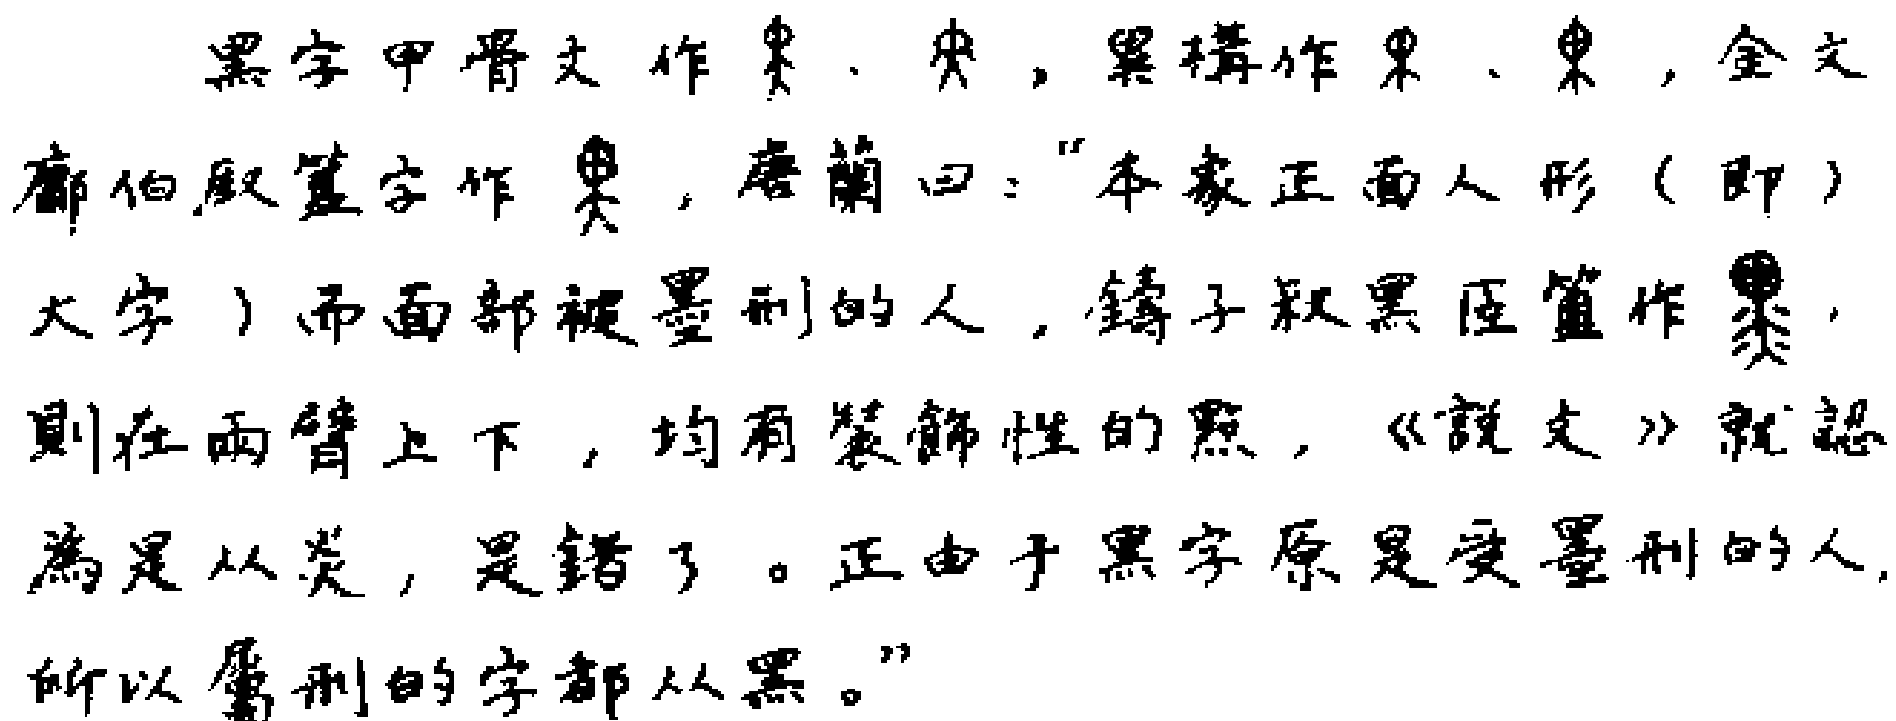 黑字甲骨文作、，異構作、，金文
鄘伯㪤簋字作，唐蘭曰："本象正面人形（即）
大字）而面部被墨刑的人，鑄子叔黑臣簠作，
則在兩臂上下，均有裝飾性的點，《說文》就認
為是从炎，是錯了。正由于黑字原是受墨刑的人，
所以屬刑的字都从黑。"